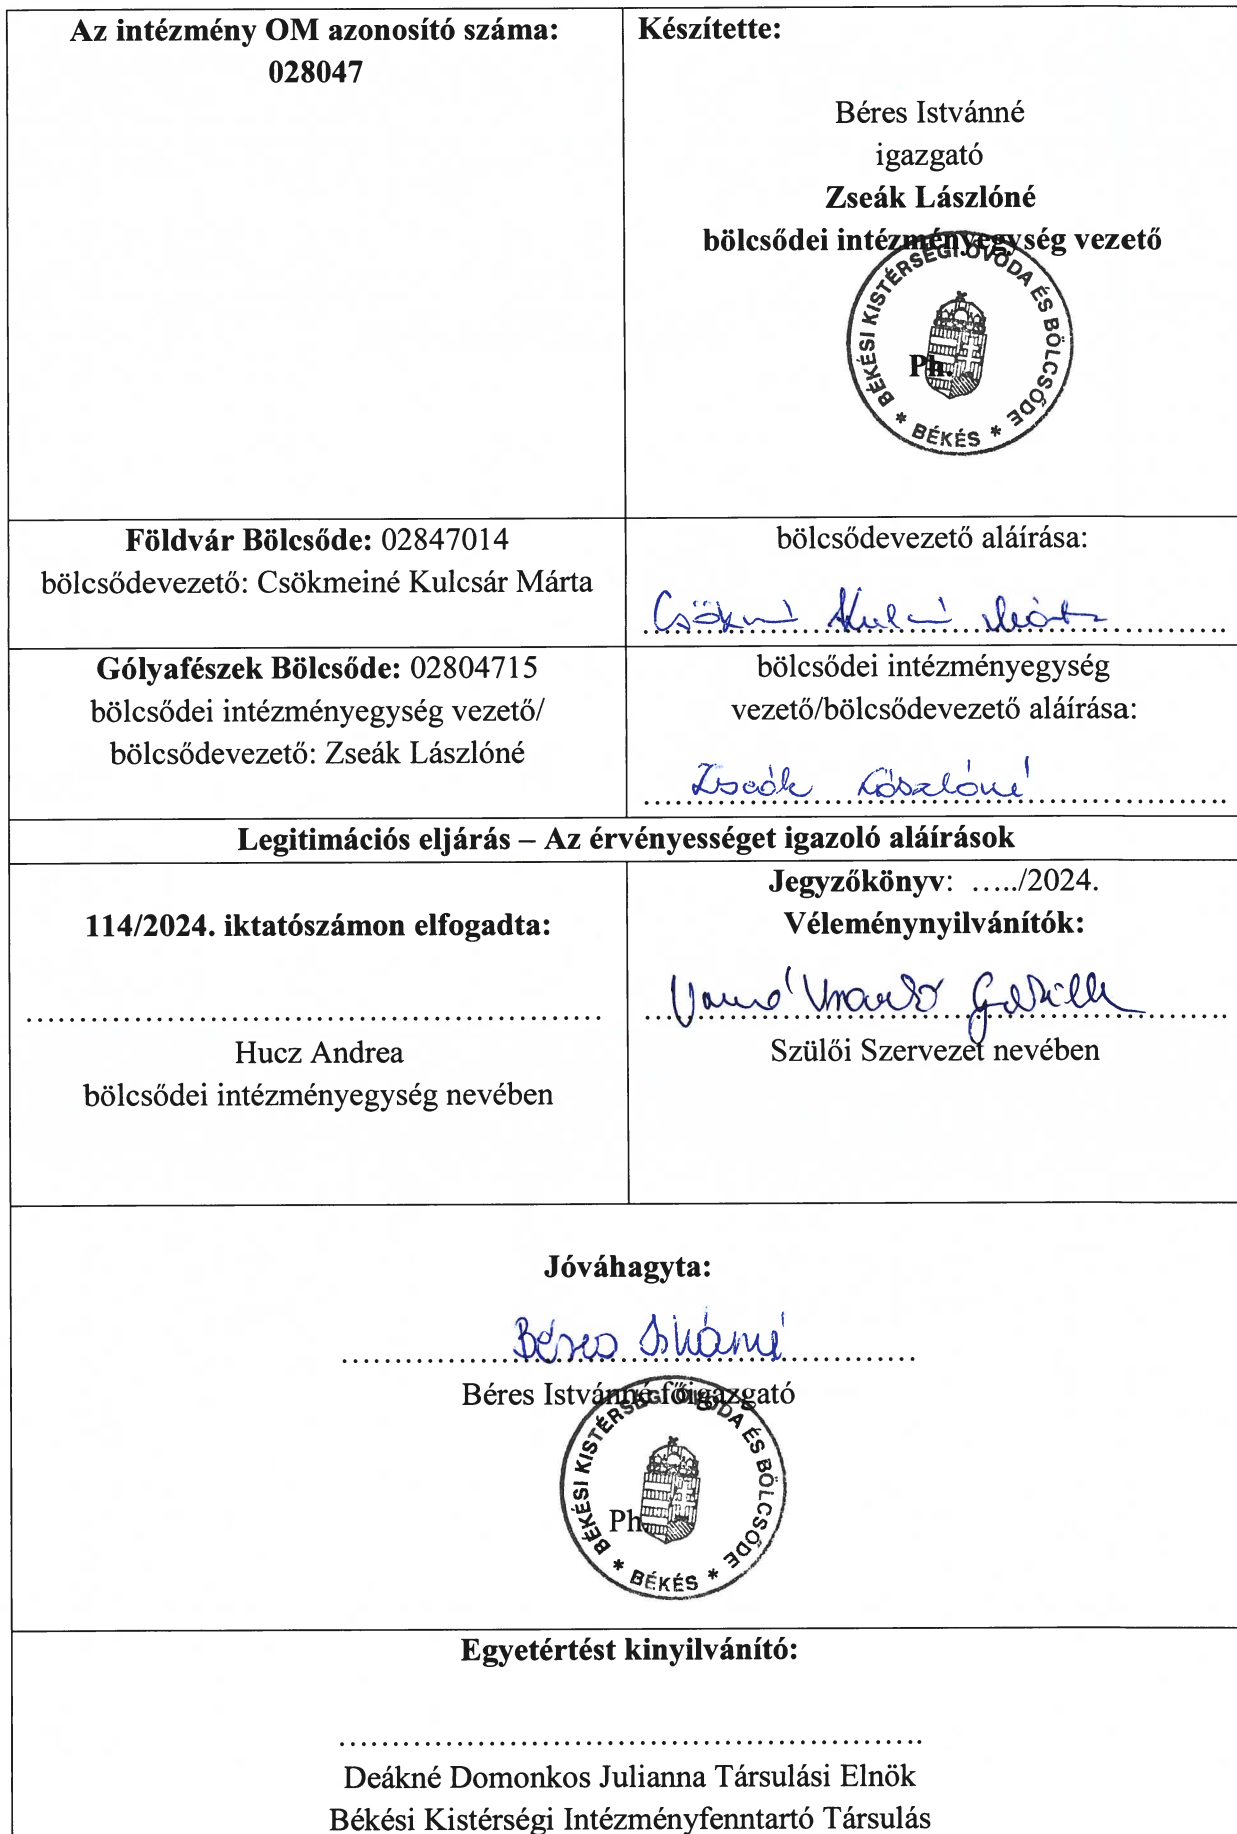 Az intézmény OM azonosító száma:
028047
Készítette:
Béres Istvánné
igazgató
Zseák Lászlóné
bölcsődei intézményegység vezető
BÉKÉSI KISTÉRSÉGI ÓVODA ÉS BÖLCSŐDE
* BÉKÉS *
Ph.
Földvár Bölcsőde: 02847014
bölcsődevezető: Csökmeiné Kulcsár Márta
bölcsődevezető aláírása:
Gólyafészek Bölcsőde: 02804715
bölcsődei intézményegység vezető/
bölcsődevezető: Zseák Lászlóné
bölcsődei intézményegység
vezető/bölcsődevezető aláírása:
Zseák Lászlóné
Legitimációs eljárás – Az érvényességet igazoló aláírások
114/2024. iktatószámon elfogadta:
Hucz Andrea
bölcsődei intézményegység nevében
Jegyzőkönyv: …../2024.
Véleménynyilvánítók:
Szülői Szervezet nevében
Jóváhagyta:
Béres Istvánné
Béres Istvánné főigazgató
BÉKÉSI KISTÉRSÉGI ÓVODA ÉS BÖLCSŐDE
* BÉKÉS *
Ph.
Egyetértést kinyilvánító:
Deákné Domonkos Julianna Társulási Elnök
Békési Kistérségi Intézményfenntartó Társulás